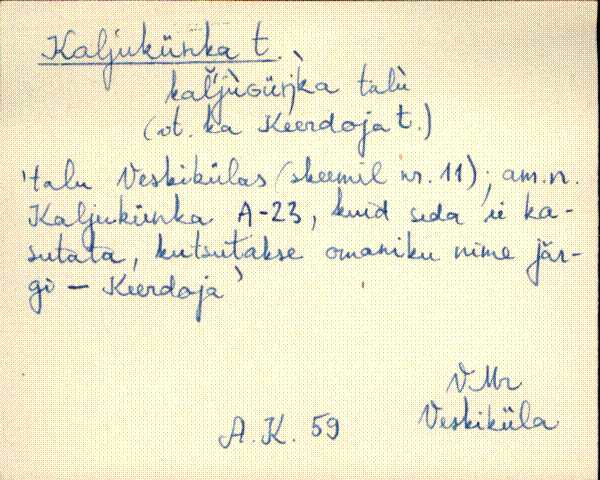 Kaljukünka t.
kal̆jùGüǹka talù
(vt. ka Keerdoja t.)
'talu Veskikülas (skeemil nr. 11); am.n.
Kaljukünka A-23, kuid seda ei ka-
sutata, kutsutakse omaniku nime jär-
gi – Keerdoja'
V.Mr
Veskiküla
A.K. 59